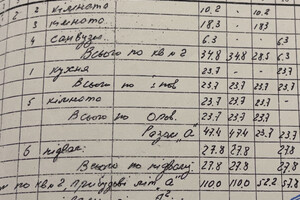 2 2 кімната 10.2 - 10.2
3 кімната 18.3 - 18.3
4 санвузол 6.3 6.3
Всього по кв №2 34.8 34.8 28.5 6.3
1 кухня 23.7 - - 23.7
Всього по І пов. 23.7 23.7 23.7
5 кімната 23.7 23.7 23.7 -
Всього по пов. 23.7 23.7 23.7 -
Разом "А" 47.4 47.4 23.7 23.7
6 підвал: 27.8 27.8 27.8
Всього по підвалу: 27.8 27.8 27.8
по кв №2, прибудові літ. "А" 110.0 110.0 52.2 57.8